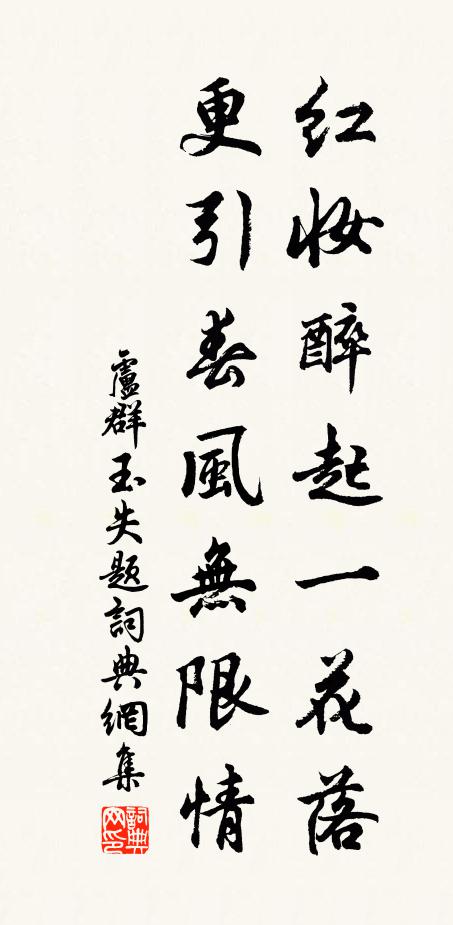 红妆醉起一花落
更引春風無限情
盧群玉失題詞典網集
詞典網印